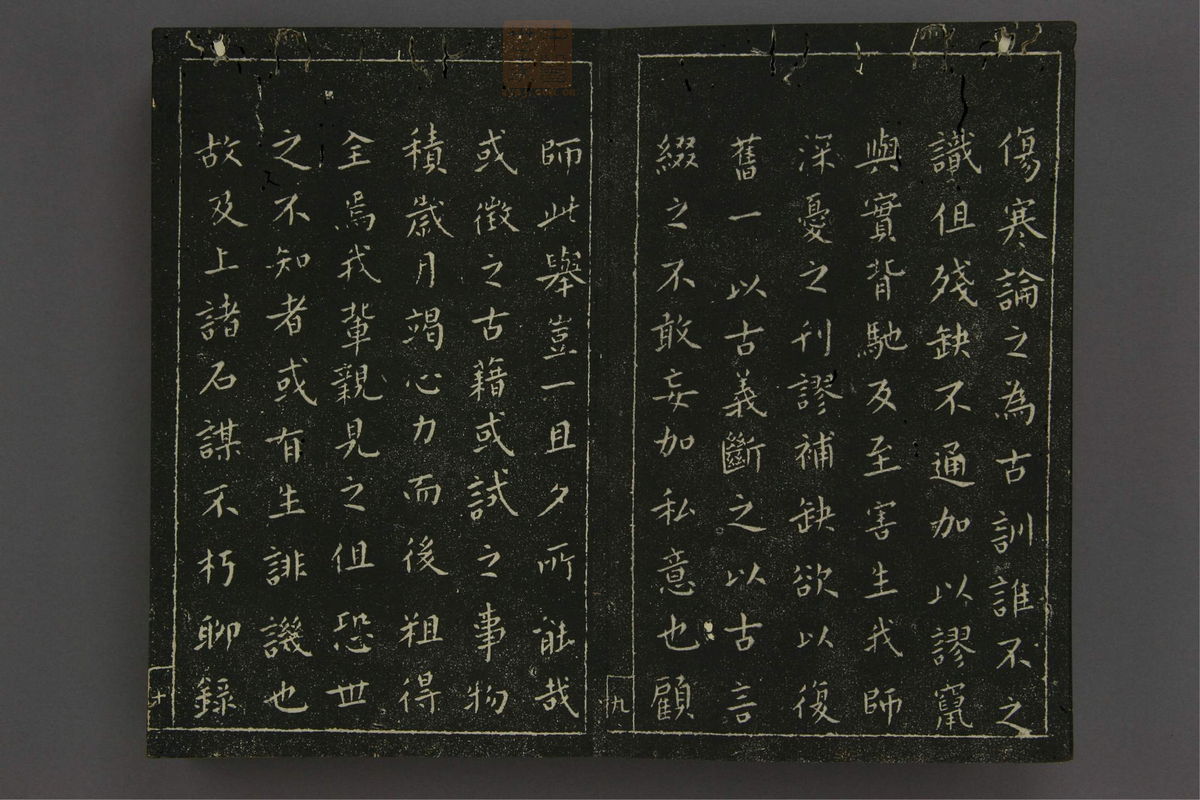 傷寒論之為古訓誰不之
識但殘缺不通加以謬竄
與實背馳及至害生我師
深憂之刊謬補缺欲以復
舊一以古義斷之以古言
綴之不敢妄加私意也顧
九
師此舉豈一旦夕所能哉
或徵之古籍或試之事物
積歲月竭心力而後粗得
全焉我輩親見之但恐世
之不知者或有生誹譏也
故及上諸石謀不朽聊錄
十